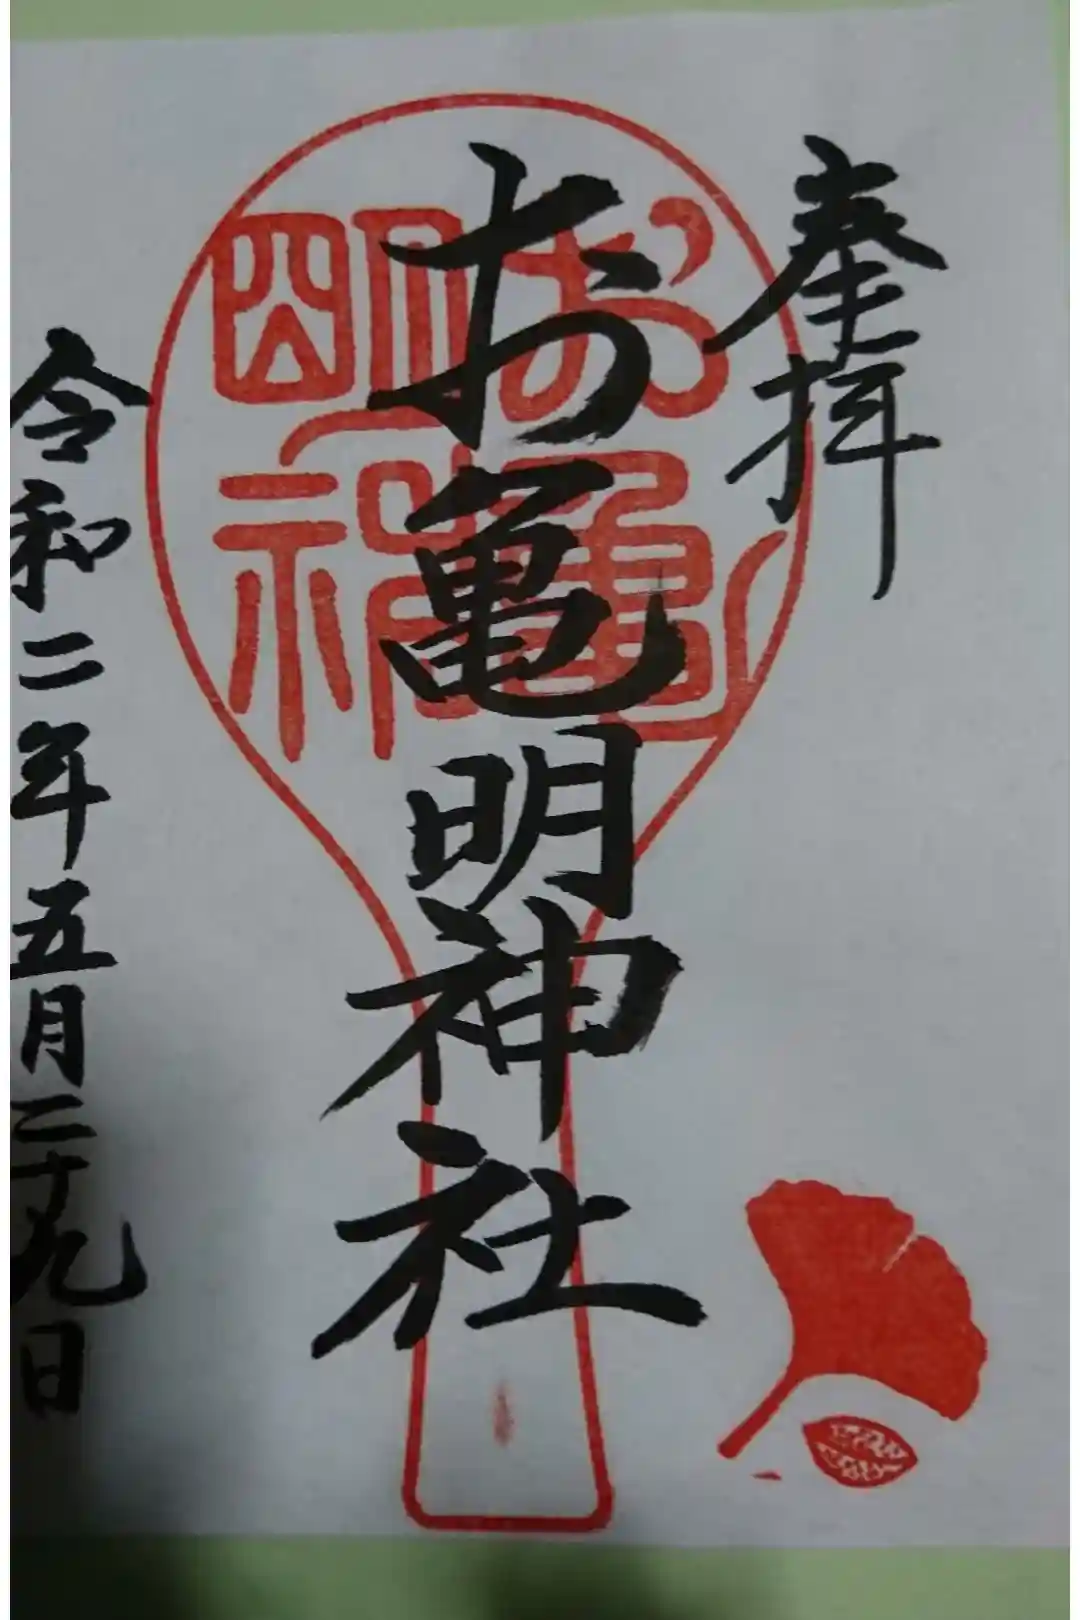 奉拝
お亀明神社
お亀
明神
令和二年五月二十九日